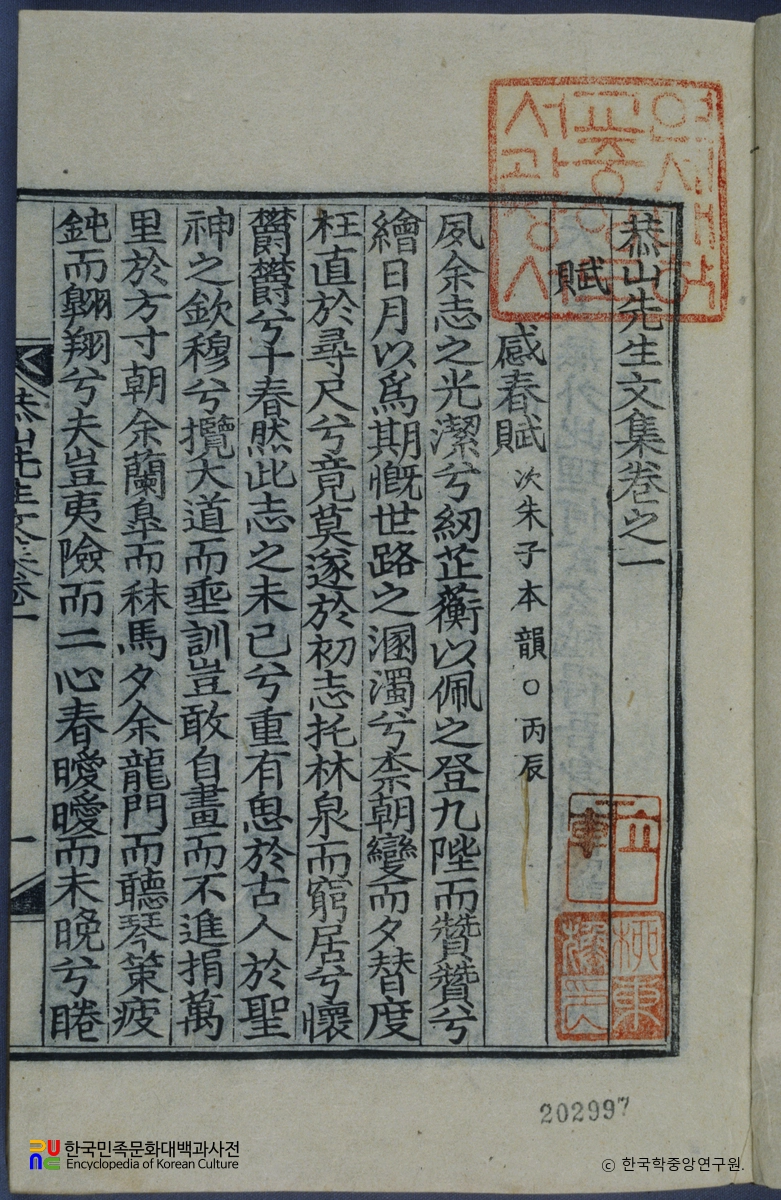 연세대학
교중앙도
서관장서
恭山先生文集卷之一
賦
感春賦 次朱子本韻○丙辰
夙余志之光潔兮紉芷蘅以佩之登九陛而贊贊兮
繪日月以爲期慨世路之溷濁兮柰朝變而夕替度
枉直於尋尺兮竟莫遂於初志托林泉而窮居兮懷
欝欝兮千春然此志之未已兮重有恖於古人於聖
神之欽穆兮攬大道而垂訓豈敢自畫而不進捐萬
里於方寸朝余蘭臯而秣馬夕余龍門而聽琴策疲
鈍而翺翔兮夫豈夷險而二心春曖曖而未晚兮睠
恭山先生文集卷一
一
202997
한국민족문화대백과사전
Encyclopedia of Korean Culture
ⓒ 한국학중앙연구원.